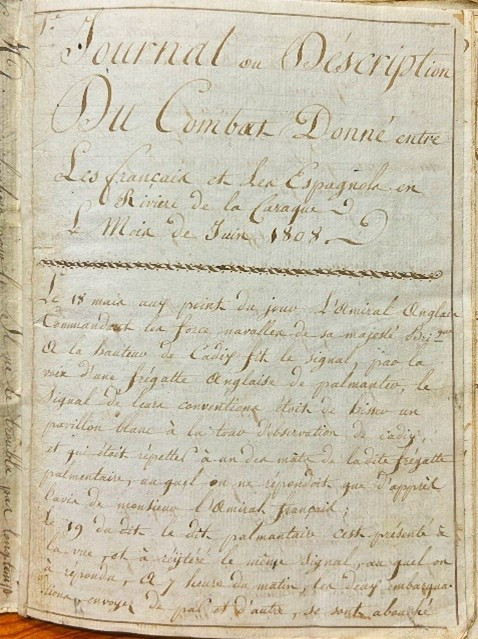 1.re
Journal ou Déscription
Du Combat Donné entre
Les français et Les Espagnols en
Rivière de la Caraque
Le Mois de Juin 1808
1.e
Le 18 mais auy point du jour L'Amiral Anglais
Commandant les force navalles de sa majesté
A la hauteur de Cadix fit le signal, par la
voix d'une frégatte Anglaise de palmanter, le
Signal de leurs conventions étoit de hisser un
pavillon blanc à la tour d'observation de Cadix,
et qui était répettés à un des mats de ladite frégatte
palmentaire, auquel on ne répondoit que d'apprés
L'avis de monsieur l'Amiral français;
Le 19 du dit le dit palmantaire c'est présenté à
la vue, et à réitéré le même signal, auquel on
à répondu, A 7 heure du matin, les deux embarqua-
tions, envoyés de part et d'autre, se sont abouché
Il ne se trouble pas longtemps